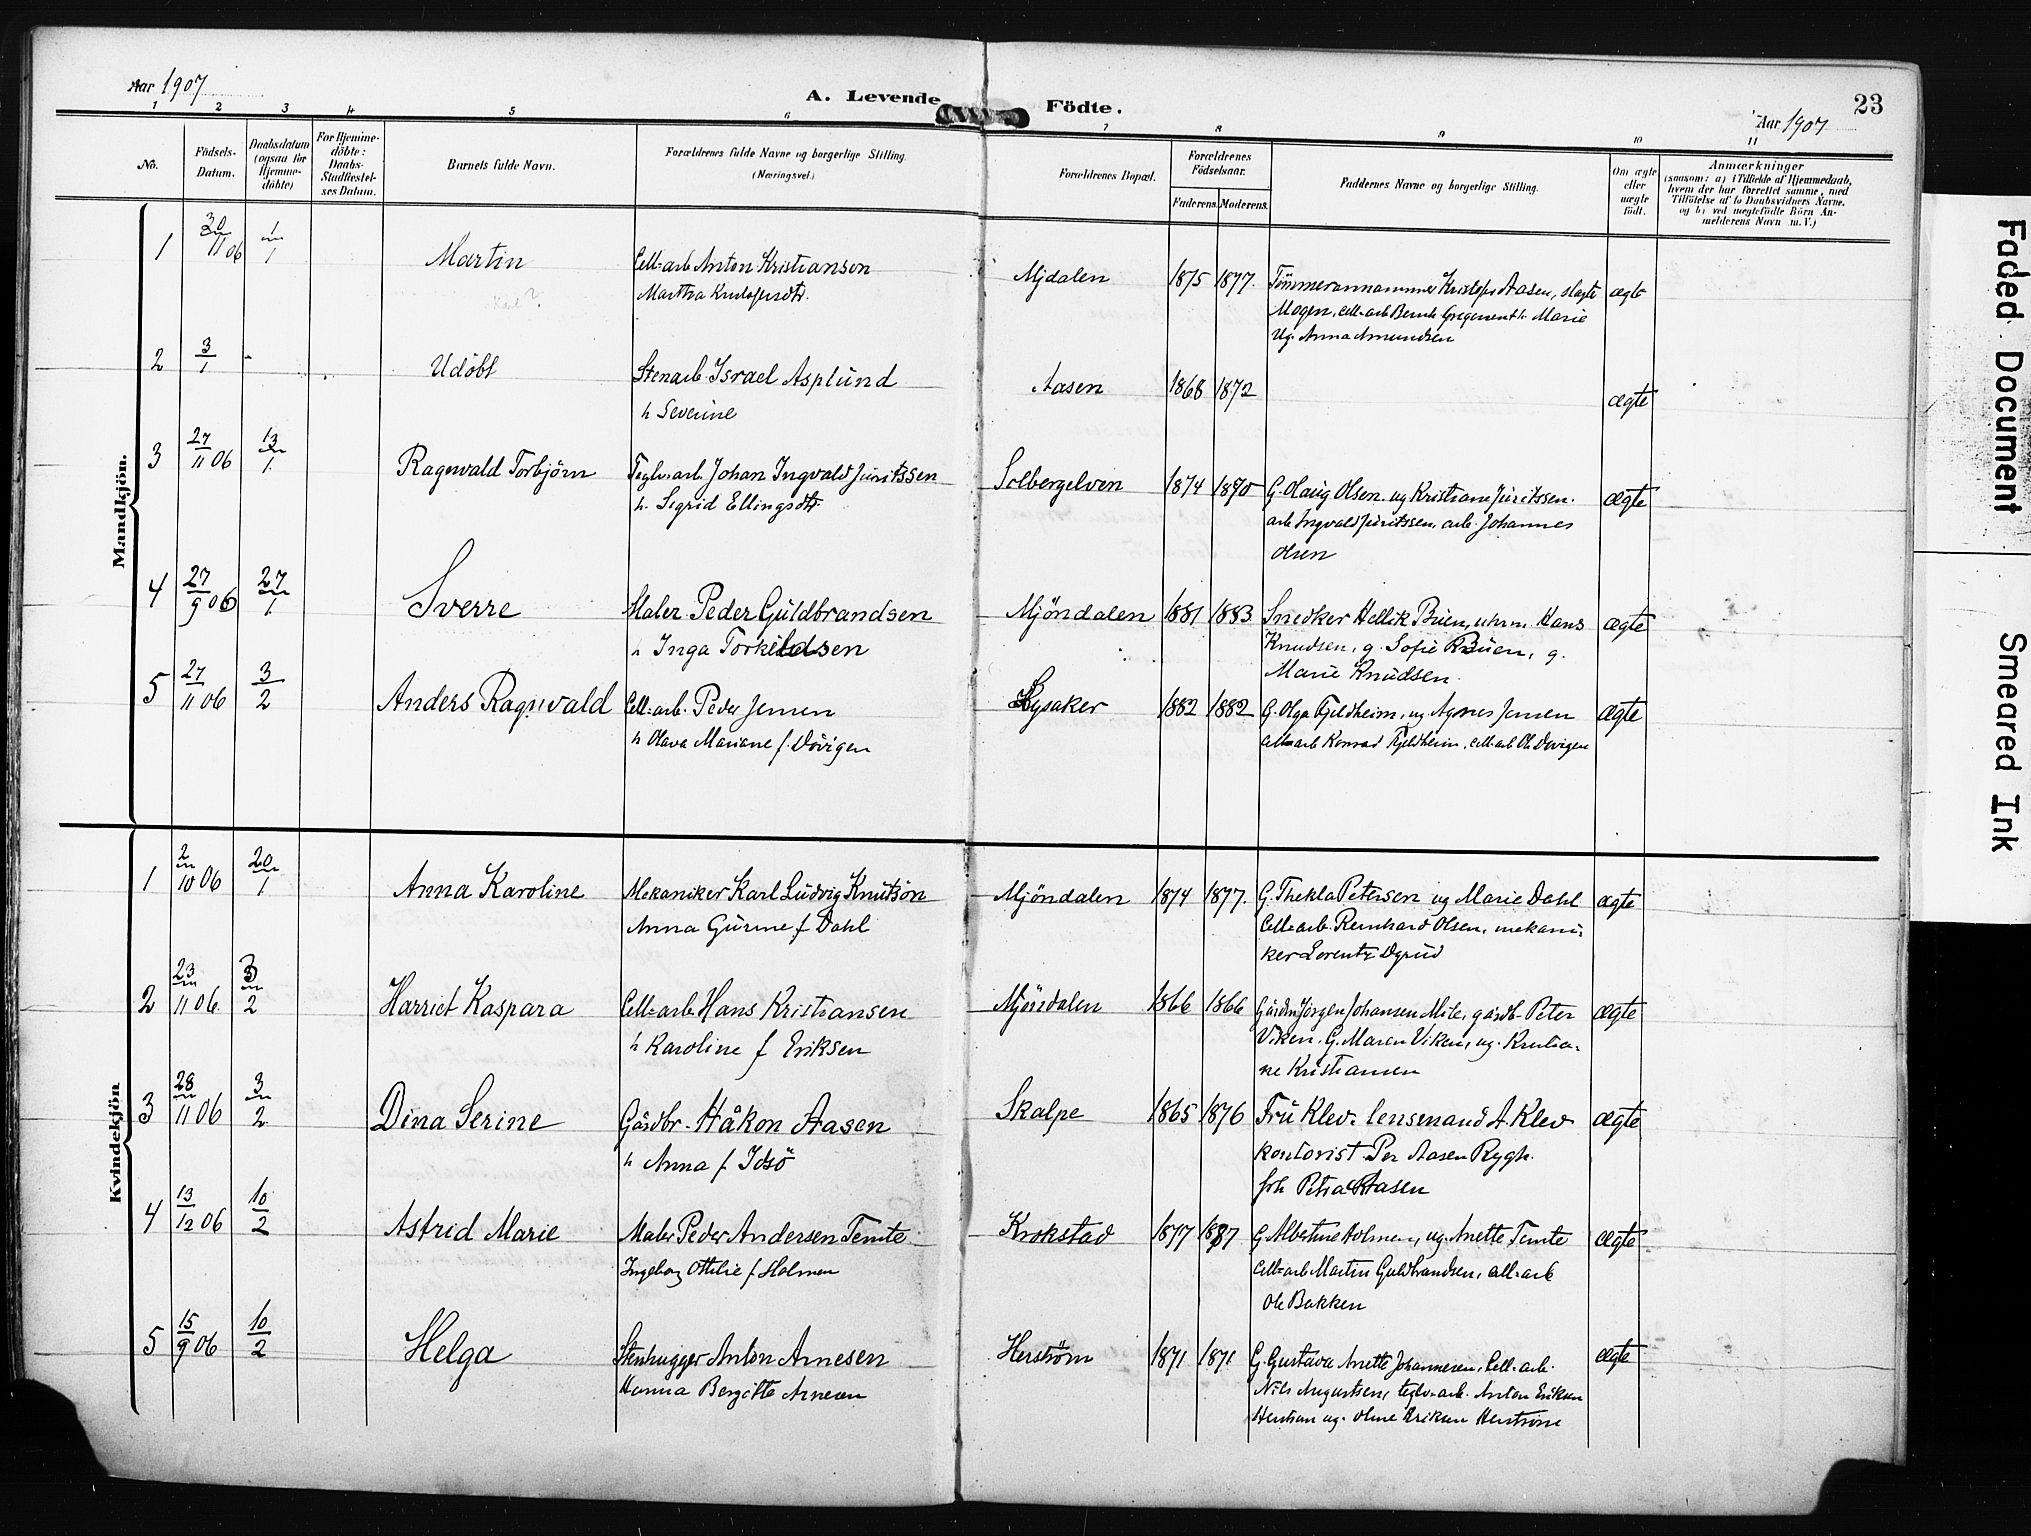 Aar 1907
A. Levende Födte.
23
Aar 1907
1 2 3 4 5 6 7 8 9 10 11
No.
Födsels-Datum.
Daabsdatum (ogsaa for Hjemme-döbte)
For Hjemme-döbte: Daabs-Stadfæstel-ses Datum.
Barnets fulde Navn.
Forældrenes fulde Navne og borgerlige Stilling.
(Næringsvei.)
Forældrenes Bopæl.
Forældrenes Födselsaar.
Faderens. Moderens.
Faddernes Navne og borgerlige Stilling.
Om ægte eller uægte födt.
Anmærkninger
(saasom: a) i Tilfælde af Hjemmedaab,
hvem der har forrettet samme, med
Tilföielse af to Daabsvidners Navne,
og b) ved uægtefödte Börn An-
melderens Navn m.V.)
Mandkjön.
1 30/11 06 1/1 Martin Cell=arb Anton Kristiansen Mjdalen 1875 1877. Aasen, ægte
Martha
Mogen, cell=arb Marie
Ug. Anna Amundsen
2 3/1 - Udöbt Stenarb Israel Asplund Aasen 1868 1872 ægte
h Severine
3 27/11 06 13/1 Ragnvald Torbjörn Teglv=arb. Johan Ingvald Juritssen Solbergelven 1874 1870 G. Olaug Olsen. ug Kristiane Juritssen. ægte
h. Sigrid Ellingsdtr. arb Ingvald Juritssen, arb. Johannes
Olsen
4 27/9 06 27/1 Sverre Maler Peder Guldbrandsen Mjöndalen 1881 1883 Snedker Hellik Buen, Hans ægte
h Inga Torkildsen Knudsen, g. Sofie Buen, g.
Marie Knudsen.
5 27/11 06 3/2 Anders Ragnvald Cell=arb. Peder Jensen Lysaker 1882 1882 G. Olga Fjeldheim, ug Agnes Jensen ægte
h Olava Mariane f. Dövigen cell=arb Konrad Fjeldheim, cell=arb Ole Dövigen
Kvindekjön
1 2/10 06 20/1 Anna Karoline Mekaniker Karl Ludvig Knutson Mjöndalen 1874 1877. G. Thekla Petersen ug Marie Dahl ægte
Anna Gurine f Dahl Cell=arb. Reinhard Olsen, mekani-
ker Lorentz
2 23/11 06. 3/2 Harriet Kaspara Cell=arb Hans Kristiansen Mjöndalen 1866 1866 Gårdbr Jörgen Johansen Mile, gårdb- Peter ægte
h Karoline f Eriksen Viken. G. Maren Viken, ug. Kristia-
ne Kristiansen
3 28/11 06 3/2 Dina Serine Gårdbr- Håkon Aasen Skalpe 1865 1876 Fru Klev. lensmand A. Klev ægte
h Anna f. Idsö kontorist Per Aasen Rygh.
frk Petra Aasen
4 13/12 06 10/2 Astrid Marie Maler Peder Andersen Temte Krokstad 1877 1887 G Albertine Holmen, ug. Anette Temte ægte
Ingeborg Ottilie f. Holmen cell=arb Martin Guldbrandsen, cell=arb
Ole Bakken
5 15/9 06 10/2 Helga Stenhugger Anton Arnesen Herström 1871 1871 G. Gustava Anette Johannesen, Cell=arb. ægte
Hanna Bergitte Arnesen Nils Augustsen, teglv=arb. Anton Eriksen
ug. Eriksen Herström
Faded Document
Smeared Ink